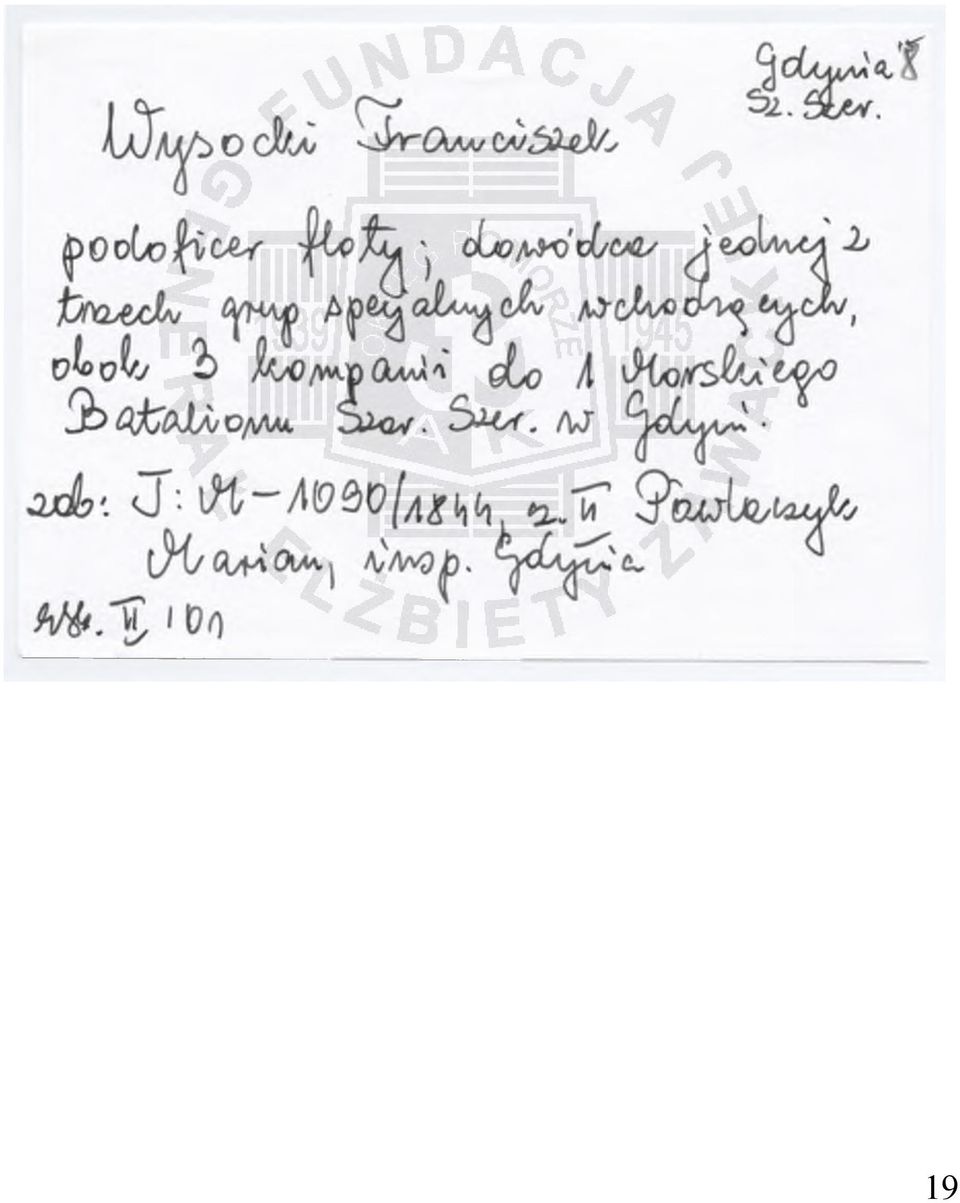 Gdynia
Sz. Szer.
Wysocki Franciszek
podoficer floty; dowódca jednej z
trzech grup specjalnych wchodzących,
obok 3 kompanii do 1 Morskiego
Batalionu Szar. Szer. w Gdyni.
zob: T: M-1090/1844, z. II Pawlaszyk
Marian, insp. Gdynia
II 101
FUNDACJA GENERAŁ ELŻBIETY ZAWACKIEJ
POMORZE
1939 1945
AK
19